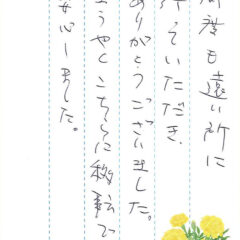 何度も遠い所に
行っていただき
ありがとうございました。
ようやくこちらに移転で
安心しました。